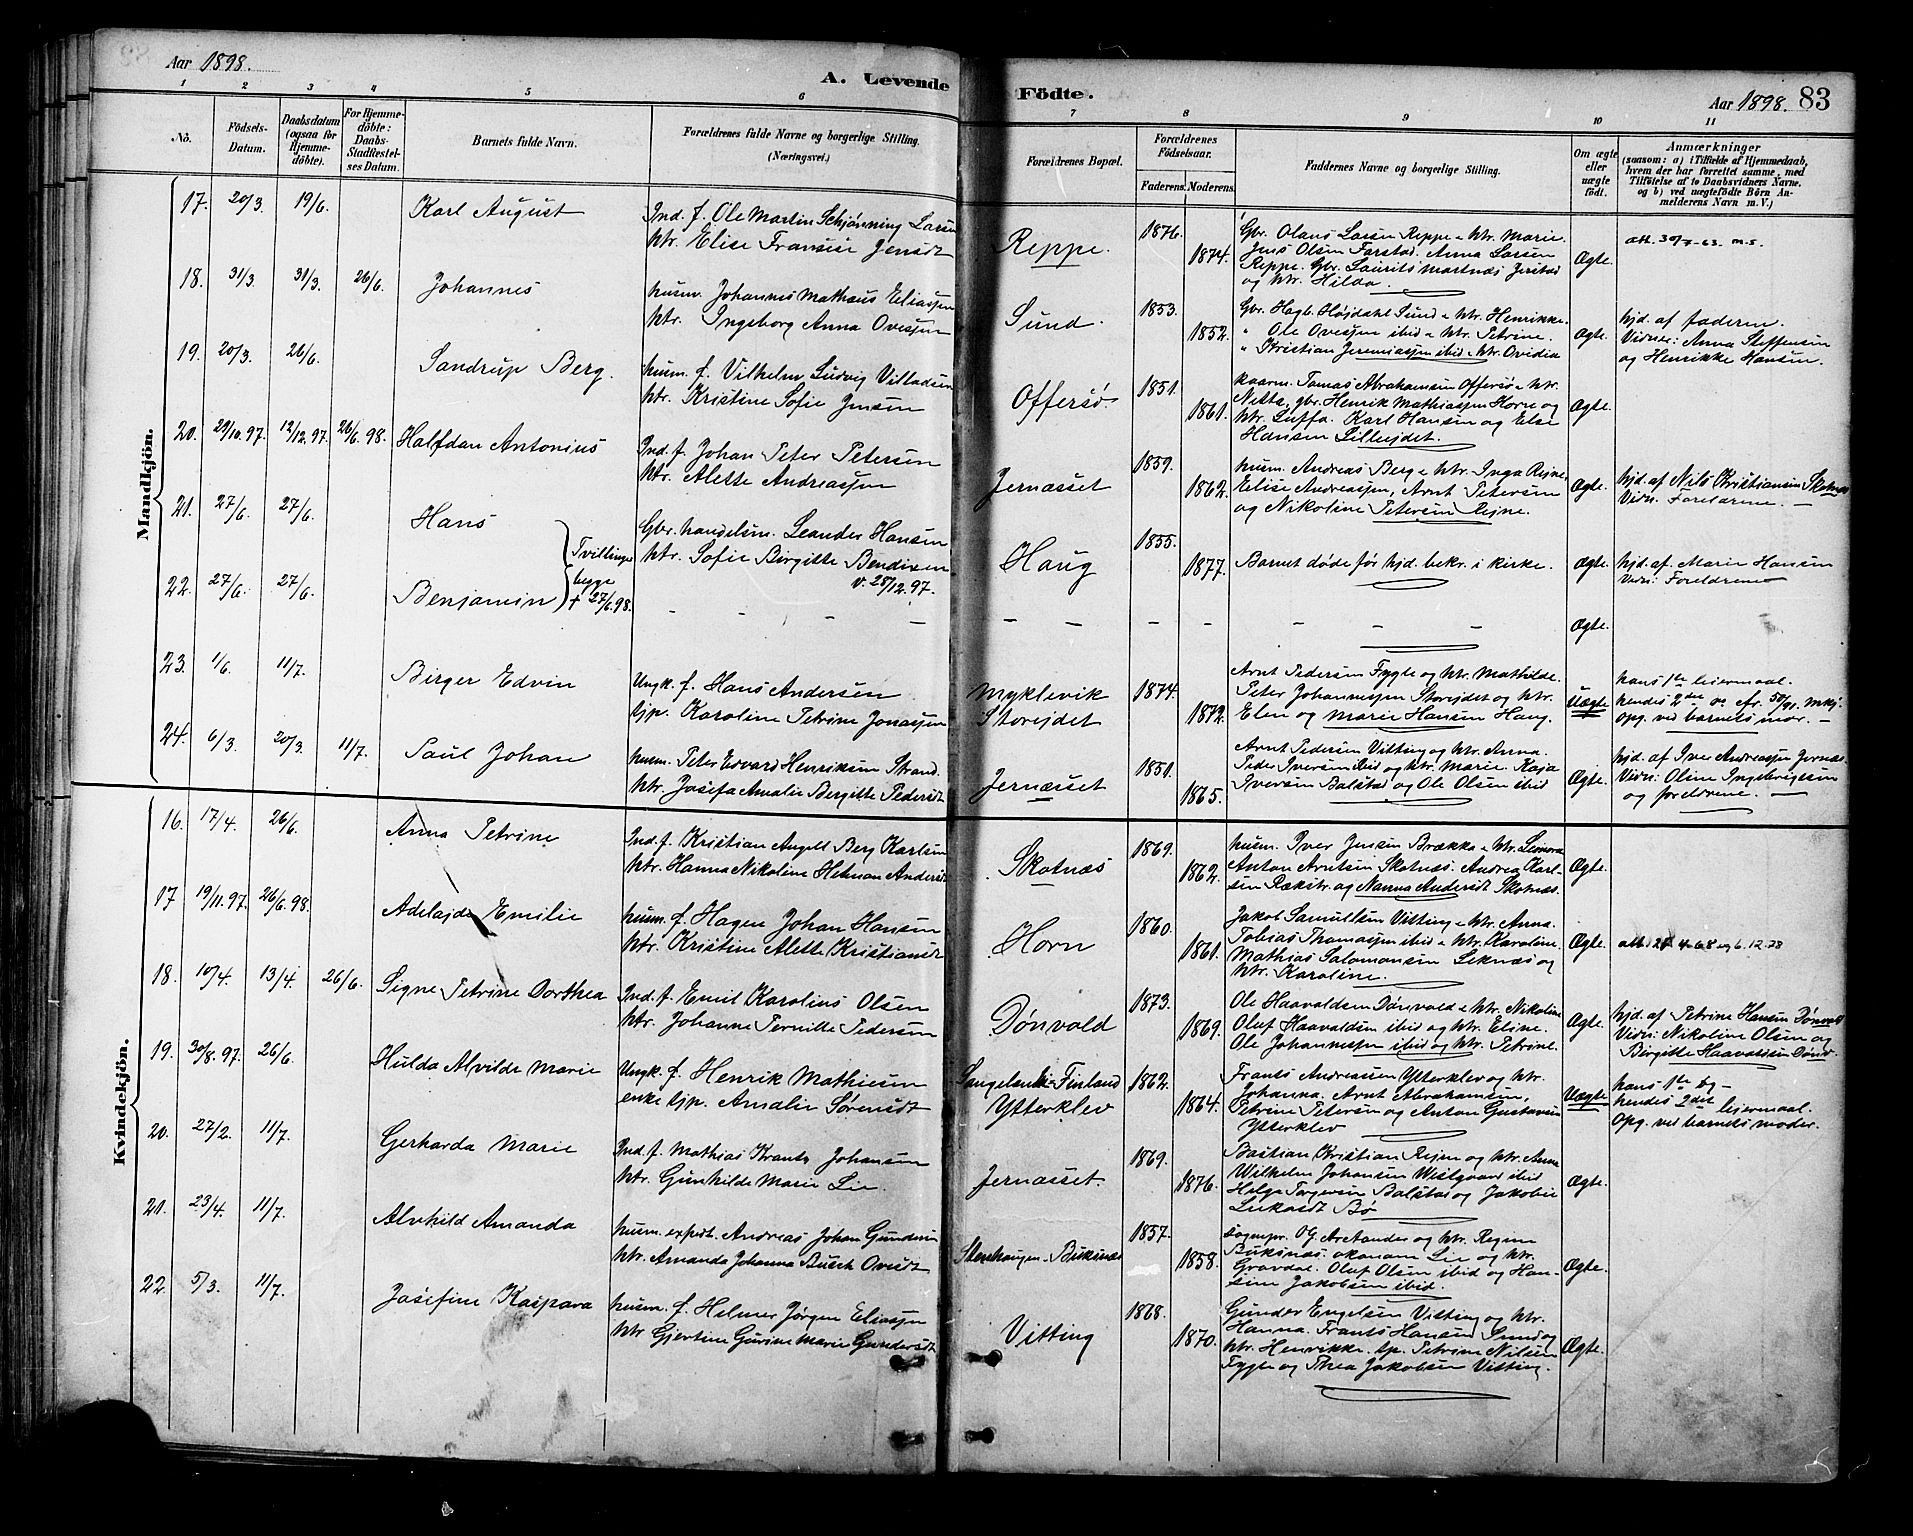 Aar 1898.
A. Levende
Födte.
Aar 1898. 83
1 2 3 4 5 6 7 8 9 10 11
No.
Födsels-Datum.
Daabsdatum (ogsaa for Hjemme-döbte).
For Hjemme-döbte: Daabs-Stadfæstel-ses Datum.
Barnets fulde Navn.
Forældrenes fulde Navne og borgerlige Stilling.
(Næringsvei.)
Forældrenes Bopæl.
Forældrenes Födselsaar.
Faderens. Moderens.
Faddernes Navne og borgerlige Stilling.
Om ægte eller uægte födt.
Anmærkninger
(saasom: a) i Tilfælde af Hjemmedaab, hvem der har forrettet samme, med Tilföielse af to Daabsvidners Navne. og b) ved uægtefödte Börn An-melderens Navn m. V.)
Mandkjön.
17. 20/3. 19/6. Karl August
Ind. f. Ole Martin Schjønning Larsen
htr. Elise Fransise Jensdt
Reppe. 1876. 1874.
Gbr. Olaus Larsen Reppe o htr. Marie.
Jens Olsen Farstad. Anna Larsen
Reppe. Gbr. Laurits Martnæs
og htr. Hilda.
Ægte.
att. 30/7-63. m.s.
18. 31/3. 31/3. 26/6. Johannes
husm. Johannes Mathæus Eliassen
htr. Ingeborg Anna Ovesen
Sund. 1853. 1852.
Gbr. Hagb. Højdahl Sund o htr. Henrikke.
" Ole Ovesen ibid o htr. Petrine.
" Kristian Jeremiassen ibid o htr. Ovidia
Ægte.
hjd. af faderen.
Vidner: Anna Steffensen
og Henrikke Hansen.
19. 20/3. 26/6. Sandrup Berg.
husm. f. Vilhelm Ludvig Villadsen
htr. Kristine Sofie Jensen
Offersø. 1851. 1861.
kaarm. Tomas Abrahamsen Offersø o htr.
Nitta, gbr. Henrik Mathiassen Horne og
htr. Luffa. Karl Hansen og Else
Hansen Lilleejdet.
Ægte.
20. 29/10.97. 12/12.97. 26/6.98. Halfdan Antonius
Ind. f. Johan Peter Petersen
htr. Alette Andreassen
Jernæsset 1859. 1862.
husm. Andreas Berg o htr. Inga Rejne,
Elise Andreassen, Arnt Petersen
og Nikoline Petersen Rejne.
Ægte.
hjd. af Nils Kristiansen Skotnæs
Vidn: Foreldrene. —
21. 27/6. 27/6. Hans
Tvillinge begge + 27/6.98.
Gbr. handelsm. Leander Hansen
htr. Sofie Birgitte Bendixen
v. 28/12.97.
Haug 1855. 1877.
Barnet døde før hjd. bekr. i kirke.
Ægte.
hjd. af Marie Hansen
Vidn: Foreldrene
22. 27/6. 27/6. Benjamin
— — — —
Ægte.
23. 1/6. 11/7. Birger Edvin
Ungk. f. Hans Andersen
tjp. Karoline Petrine Jonassen
Myklevik
Storejdet
1874. 1872.
Arnt Pedersen Fygle og htr. Mathilde.
Peter Johannessen Storejdet og htr.
Elen og Marie Hansen Haug.
Uægte
hans 1ste leiermaal.
hendes 2det do cfr. 50/91. mkj.
opg. ved barnets mor. —
24. 6/3. 20/3. 11/7. Paul Johan
husm. Peter Edvard Henriksen Strand
htr. Josefa Amalie Bergitte Pedersdt
Jernæsset 1851. 1865.
Arnt Pedersen Vitting og htr. Anna.
Peder Iversen ibid og htr. Marie. Kaja
Iversen Balstad og Ole Olsen ibid
Ægte.
hjd. af Iver Andreassen Jernæs.
Vidn: Oline Ingebrigtsen
og foreldrene. —
Kvindekjön.
16. 17/4. 26/6. Anna Petrine
Ind. f. Kristian Angell Berg Karlsen
htr. Hanna Nikoline Heman Andersdt
Skotnæs 1869. 1862.
husm. Iver Jensen Brække o htr. Leonora
Anton Arntsen Skotnæs. Andrea Karl-
sen Rækstr. og Nanna Andersdt Skotnæs.
Ægte.
17 19/11.97. 26/6.98. Adelajde Emilie
husm. f. Hagen Johan Hansen
htr. Kristine Alette Kristiansdt
Horn 1860. 1861.
Jakob Samuelsen Vitting o htr. Anna.
Tobias Thomassen ibid o htr. Karoline.
Mathias Salomonsen Leknæs og
htr. Karoline.
Ægte.
att. 21 4-68 og 6.12.78
18. 10/4. 13/4. 26/6. Signe Petrine Dorthea
Ind. f. Emil Karolius Olsen
htr. Johanne Pernille Pedersen
Dønvold 1873. 1869.
Ole Haavaldsen Dønvold o htr. Nikoline
Oluf Haavaldsen ibid og htr. Eline.
Ole Johannessen ibid og htr. Petrine.
Ægte.
hjd. af Petrine Hansen Dønvold
Vidn: Nikoline Olsen og
Birgitte Haavaldsen Dønv.
19. 30/8.97. 26/6. Hulda Alvilde Marie
Ungk. f. Henrik Mathiesen
enke tjp. Amalie Sørensdt
Finland
Ytterklev
1862. 1864.
Frants Andreassen Ytterklev og htr.
Johanna. Arnt Abrahamsen,
Petrine Petersen og Anton Gustavsen
Ytterklev
Uægte
hans 1ste og
hendes 2det leiermaal.
Opg. ved barnets moder.
20. 27/2. 11/7. Gerharda Marie
Ind. f. Mathias Krantz Johansen
htr. Gunhilde Marie Lie.
Jernæsset. 1869. 1876.
Bastian Kristian Rejne og htr. Anna
Wilhelm Johansen Westgaard ibid
Helga Torgersen Balstad og Jakobie
Lukasdt Bø
Ægte.
21. 23/4. 11/7. Alvhild Amanda
husm. expedt. Andreas Johan Gundersen
htr. Amanda Johanna Busch Ovesdt
Stenhaugen. Buksnæs 1857. 1858.
sognepr. OG Arctander og htr. Regine
Buksnæs. økonom Lie og htr.
Gravdal. Oluf Olsen ibid og Han-
sine Jakobsen ibid.
Ægte.
22. 5/3. 11/7. Josefine Kaspara
husm. f. Helmer Jørgen Eliassen
htr Gjertine Gurine Marie Gundersdt
Vitting 1868. 1870.
Gunder Engelsen Vitting og htr.
Hanna. Frants Hansen Sund og
htr. Henrikke. tp. Petrine Nilsen
Fygle og Thea Jakobsen Vitting.
Ægte.